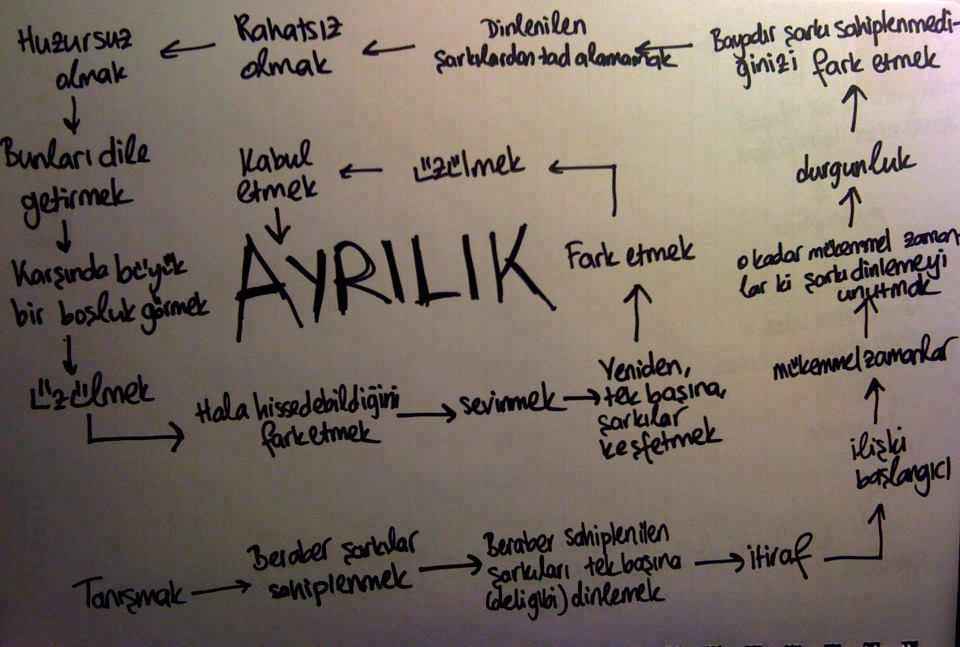 Huzursuz
olmak
Rahatsız
olmak
Dinlenilen
şarkılardan tad alamamak
Baya'dır şarkı sahiplenmedi-
ğinizi fark etmek
Bunları dile
getirmek
Kabul
etmek
Üzülmek
durgunluk
Karşında büyük
bir boşluk görmek
AYRILIK
Fark etmek
o kadar mükemmel zaman-
lar ki şarkı dinlemeyi
unutmak
Üzülmek
Hala hissedebildiğini
farketmek
sevinmek
Yeniden,
tek başına,
şarkılar
keşfetmek
mükemmel zamanlar
ilişki
başlangıcı
Tanışmak
Beraber şarkılar
sahiplenmek
Beraber sahiplenilen
şarkıları tek başına
(deli gibi) dinlemek
itiraf